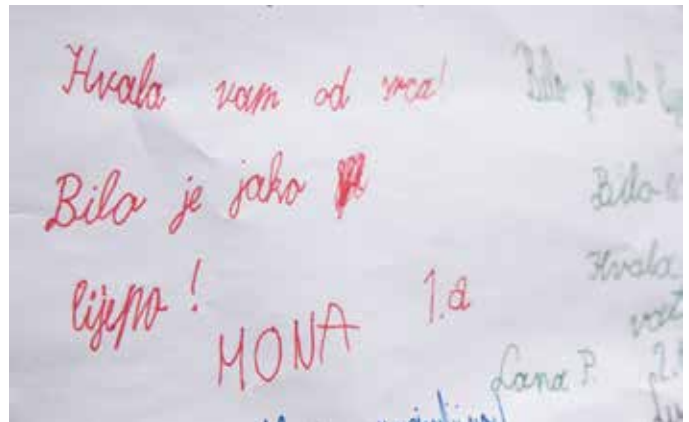 Hvala vam od srca!
Bilo je jako
lijepo!
MONA 1.a
Bilo je
Bilo
Hvala
Lana P. 2.